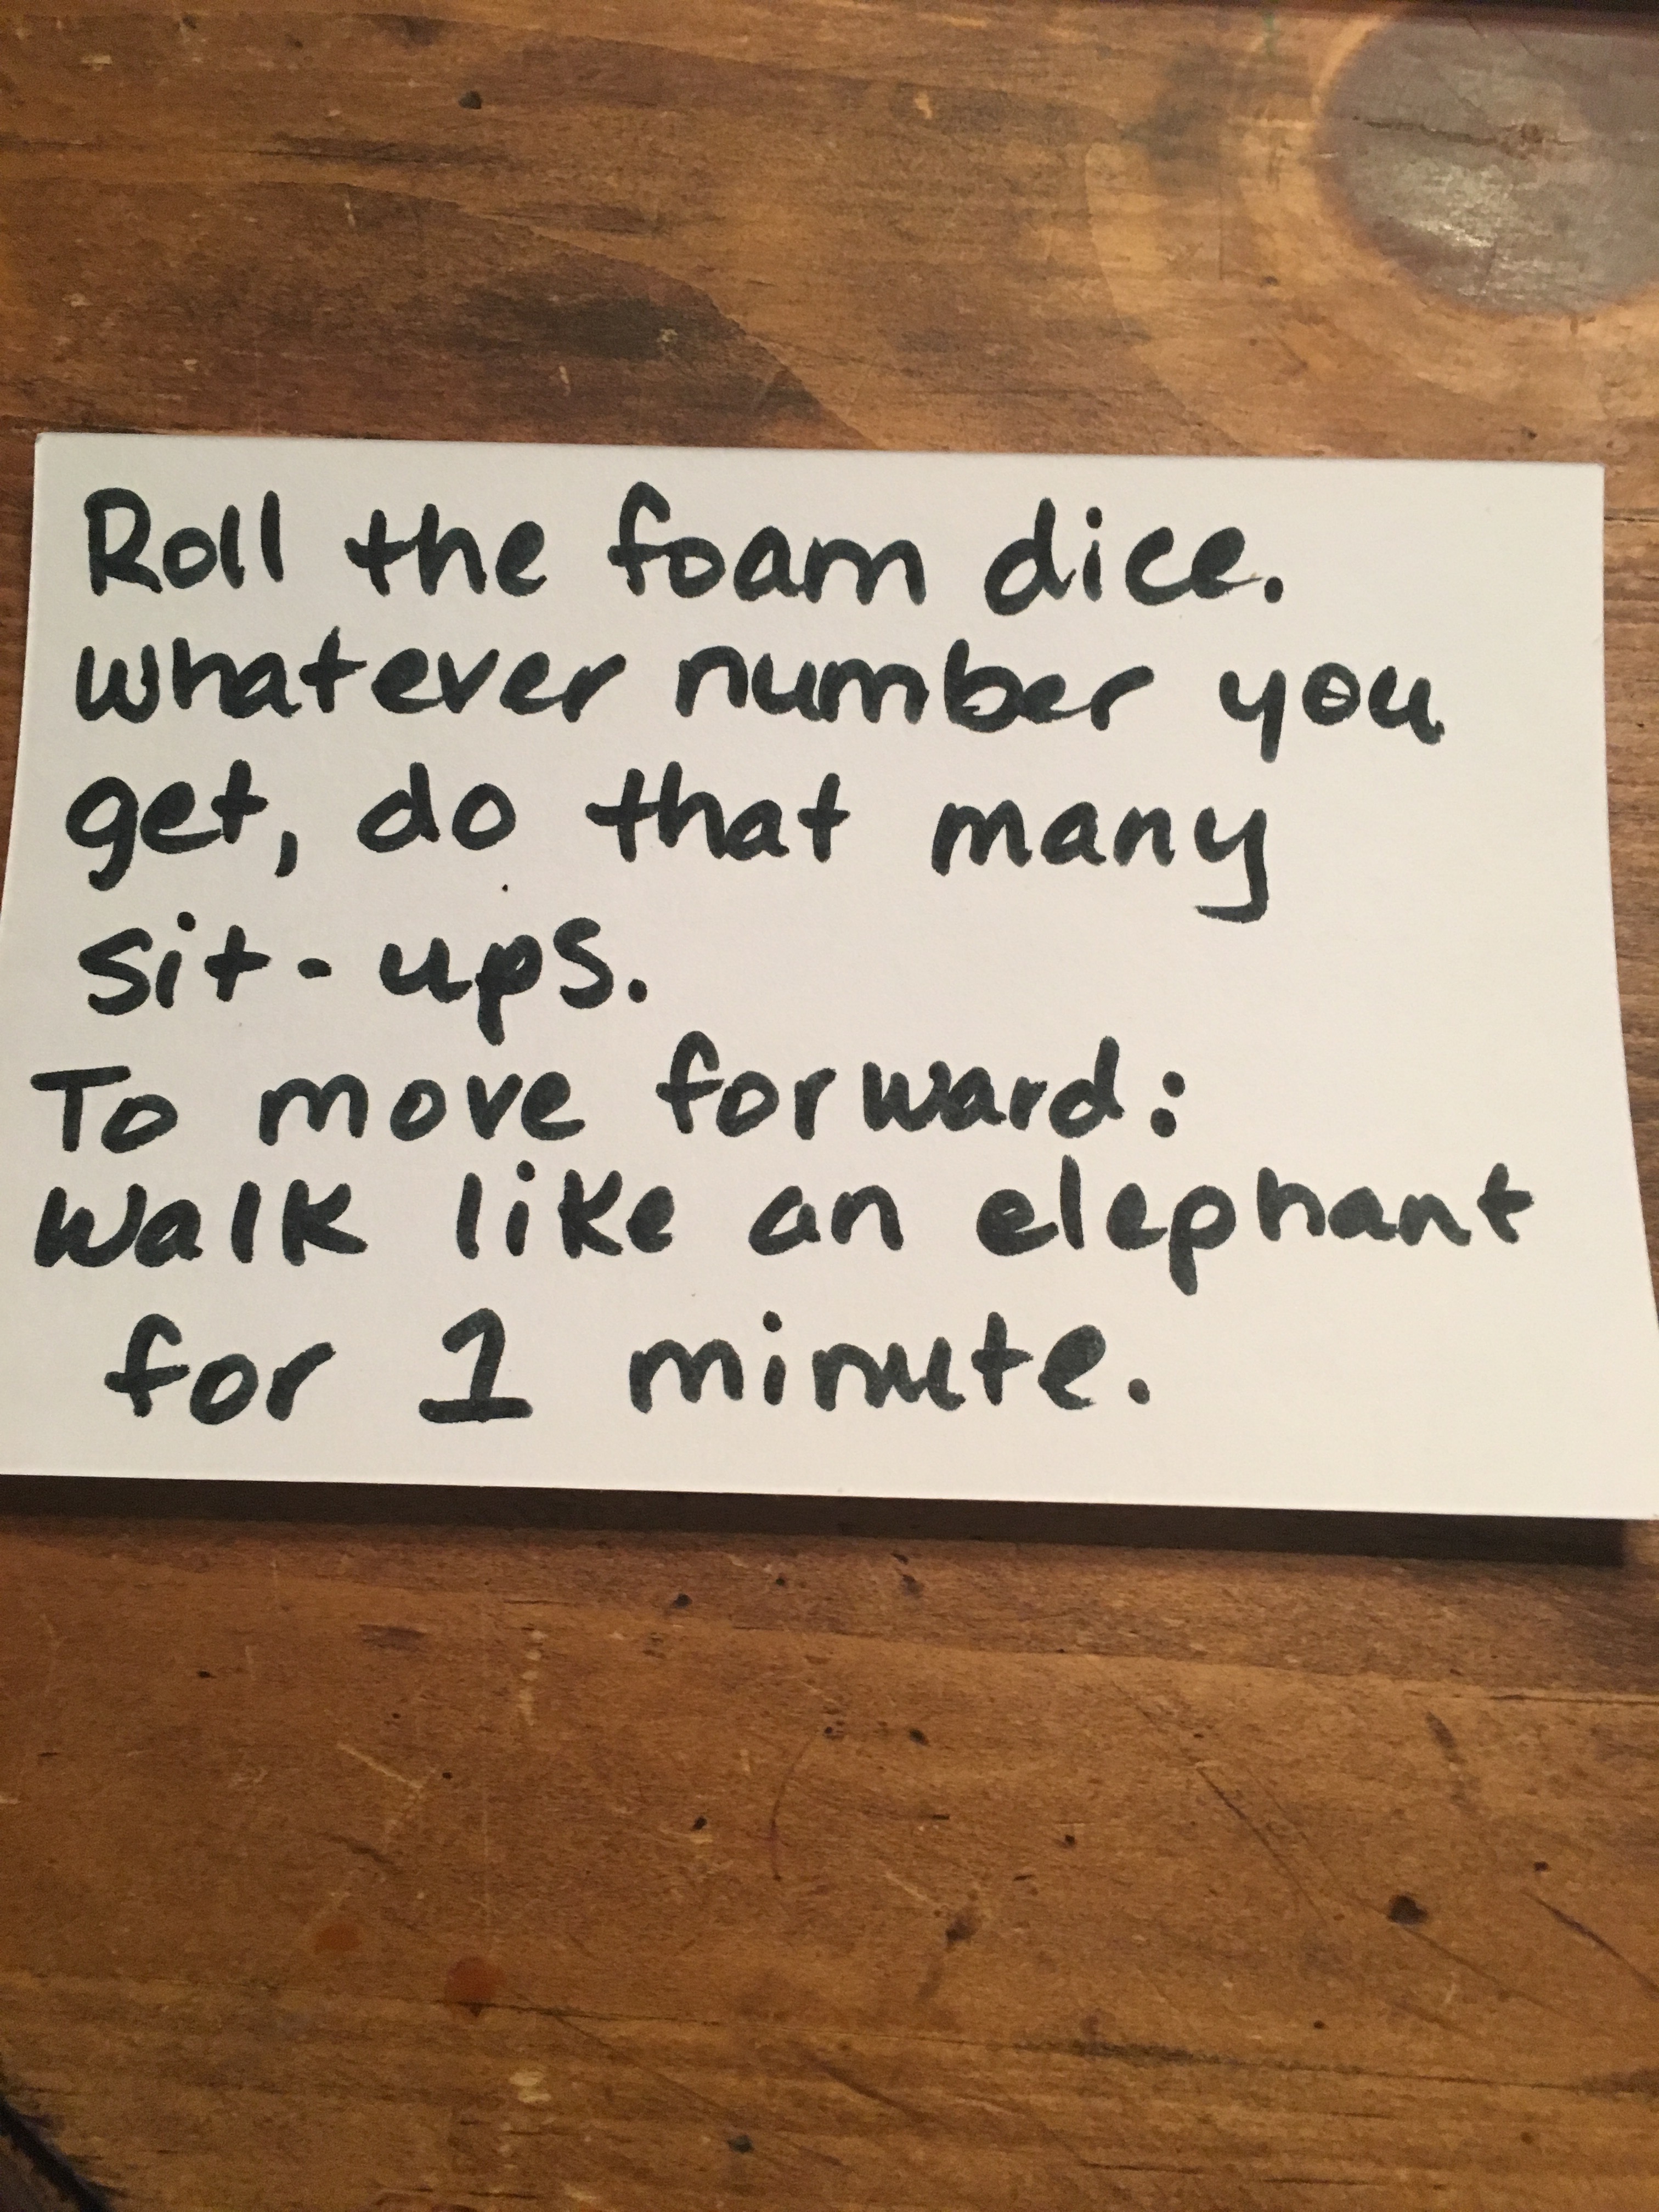 Roll the foam dice.
whatever number you
get, do that many
sit-ups.
To move forward:
Walk like an elephant
for 1 minute.